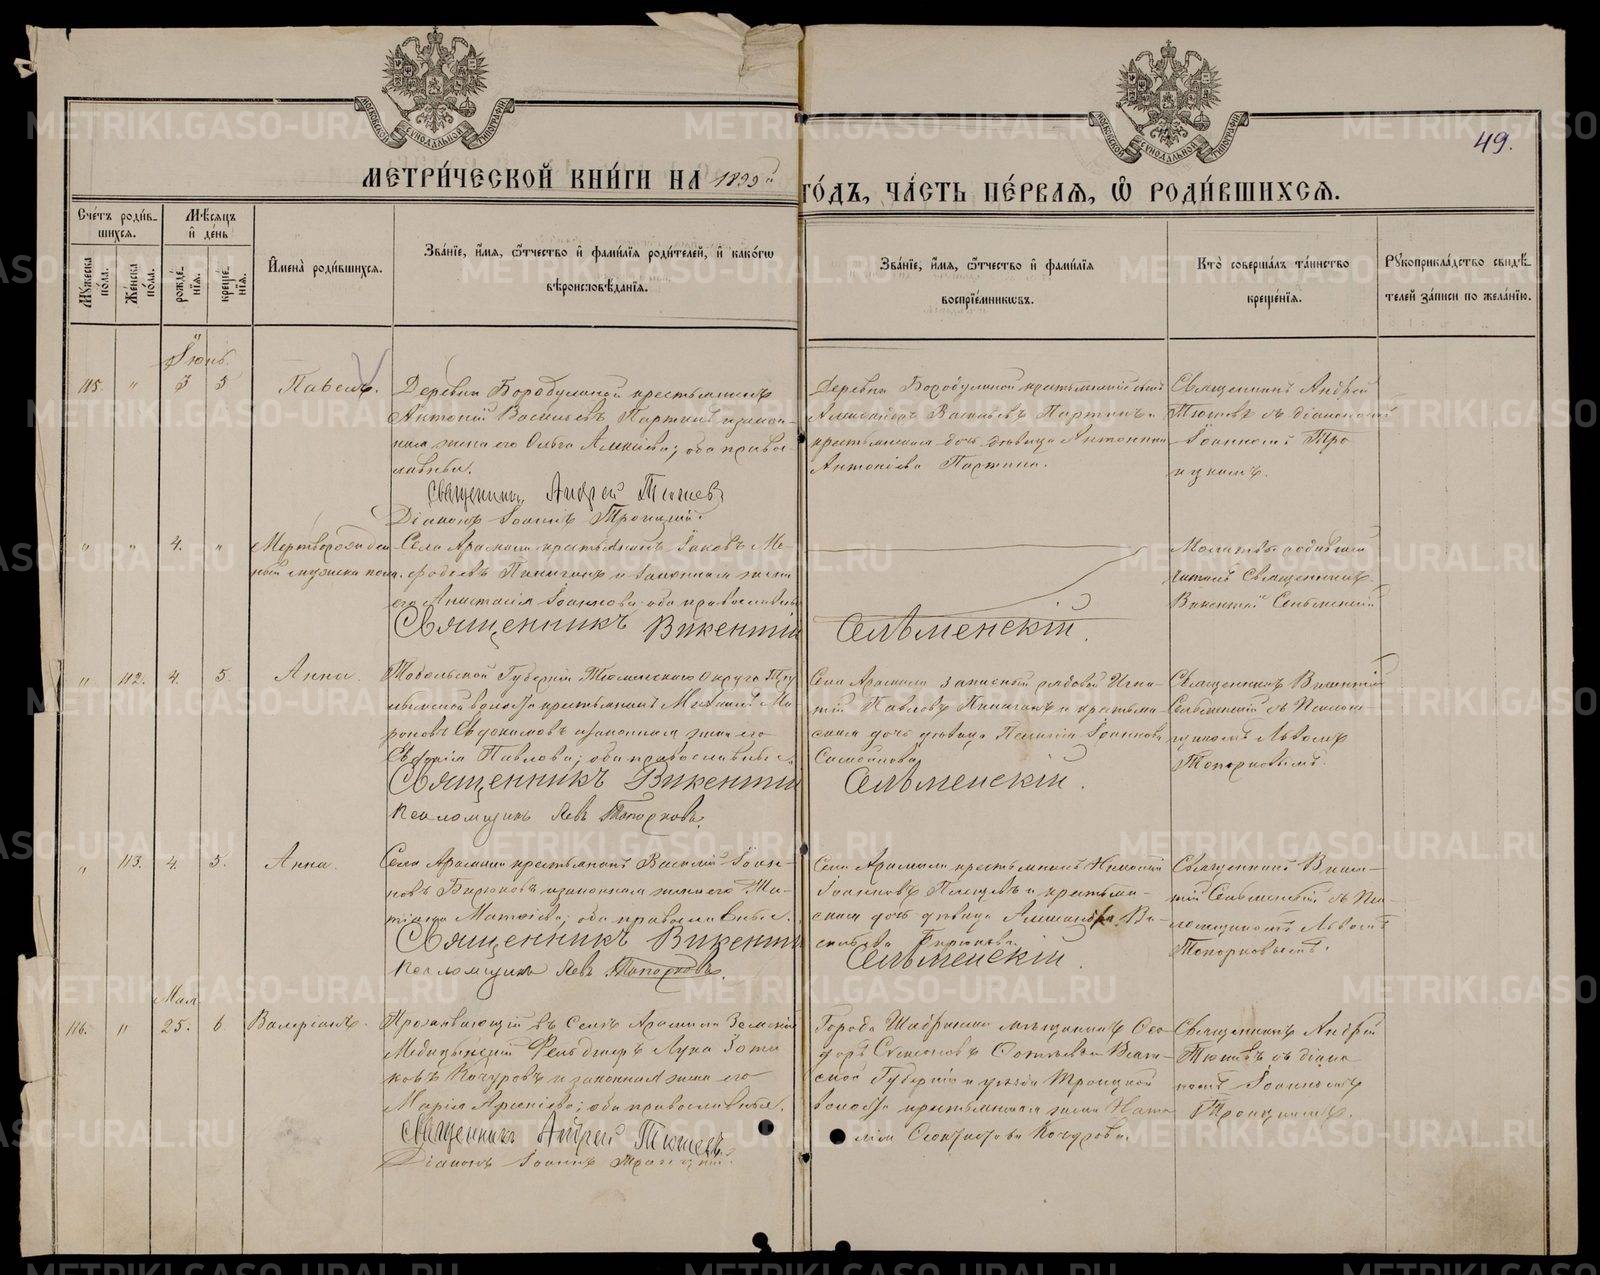 49.
МЕТРИ́ЧЕСКОЙ КНИ́ГИ НА 1899й
ГО́ДЪ, ЧА́СТЬ ПЕ́РВАЯ, Ѽ РОДИ́ВШИХСЯ.
Сче́тъ роди́в-
шихся.
Мѣ́сяцъ
и҆ де́нь
Му́жеска по́ла.
Же́нска по́ла.
рожде́нїя.
креще́нїя.
И҆мена̀ роди́вшихся.
Зва́нїе, и҆́мя, ѻ҆́тчество и҆ фами́лїя роди́телей, и҆ како́гѡ
вѣроисповѣ́данїя.
Зва́нїе, и҆́мя, ѻ҆́тчество и҆ фами́лїя
воспрїе́мниковъ.
Кто̀ соверша́лъ та́инство
креще́нїя.
Рꙋкоприкла́дство свидѣ́-
телей за́писи по жела́нїю.
Іюнь.
115. " 3 5 Павелъ.
Деревни Бородулиной крестьянинъ
Антоній Васильевъ Партинъ и закон-
ная жена его Ольга ; оба право-
славные.
Священникъ Андрей Тюшев
Діаконъ Іоаннъ Троицкій.
Деревни Бородулиной крестьянскій сынъ
Александръ Васильевъ Партинъ и
крестьянская дочь девица Антонина
Антоніева Партина.
Священникъ Андрей
Тюшевъ съ діакономъ
Іоанномъ Тро
ицкимъ.
" " 4. " Мертворожден
ный мужеска пола.
Села Арамили крестьянинъ Іаковъ Ме-
фодіевъ Пинигинъ и законная жена
его Анастасія Іоаннова; оба православные
Священникъ Викентій Сельменскій.
Молитвы родившей
читалъ Священникъ
Викентій Сельменскій
" 112. 4. 5. Анна.
Тобольской Губерніи Тюменскаго Округа
волости крестьянинъ Михаилъ Ми
роновъ Евдокимовъ и законная жена его
Павлова; оба православные.
Священникъ Викентій Сельменскій.
Псаломщикъ Левъ Топорковъ.
Села Арамили запасный рядовой Игна-
тій Павловъ Пинигинъ и крестьян
ская дочь девица Пелагія Іоаннова
Священникъ Викентій
Сельменскій съ Псалом-
щикомъ Львомъ
Топорковымъ.
" 113. 4. 5. Анна.
Села Арамили крестьянинъ Василій Іоан-
новъ Бирюковъ и законная жена его Та-
тіана Матѳіева; оба православные.
Священникъ Викентій Сельменскій.
Псаломщикъ Левъ Топорковъ.
Села Арамили крестьянинъ Николай
Іоанновъ и крестьян-
ская дочь девица Александра Ва-
сильева Бирюкова.
Священникъ Викен-
тій Сельменскій съ Пса-
ломщикомъ Львомъ
Топорковымъ.
Мая
116. " 25. 6. Валеріанъ.
Проживающій въ Селѣ Арамили Земскій
Медицинскій Фельдшеръ Лука Зоти
ковъ Качуровъ и законная жена его
Марія Арсеніева; оба православные.
Священникъ Андрей Тюшевъ
Діаконъ Іоаннъ Троицкій.
Города Шадринска мѣщанинъ Ѳео
доръ Семеновъ Вят-
ской Губерніи и уезда Троицкой
волости крестьянская жена Ната
лія Качурова.
Священникъ Андрей
Тюшевъ съ діако
номъ Іоанномъ
Троицкимъ.
METRIKI.GASO-URAL.RU